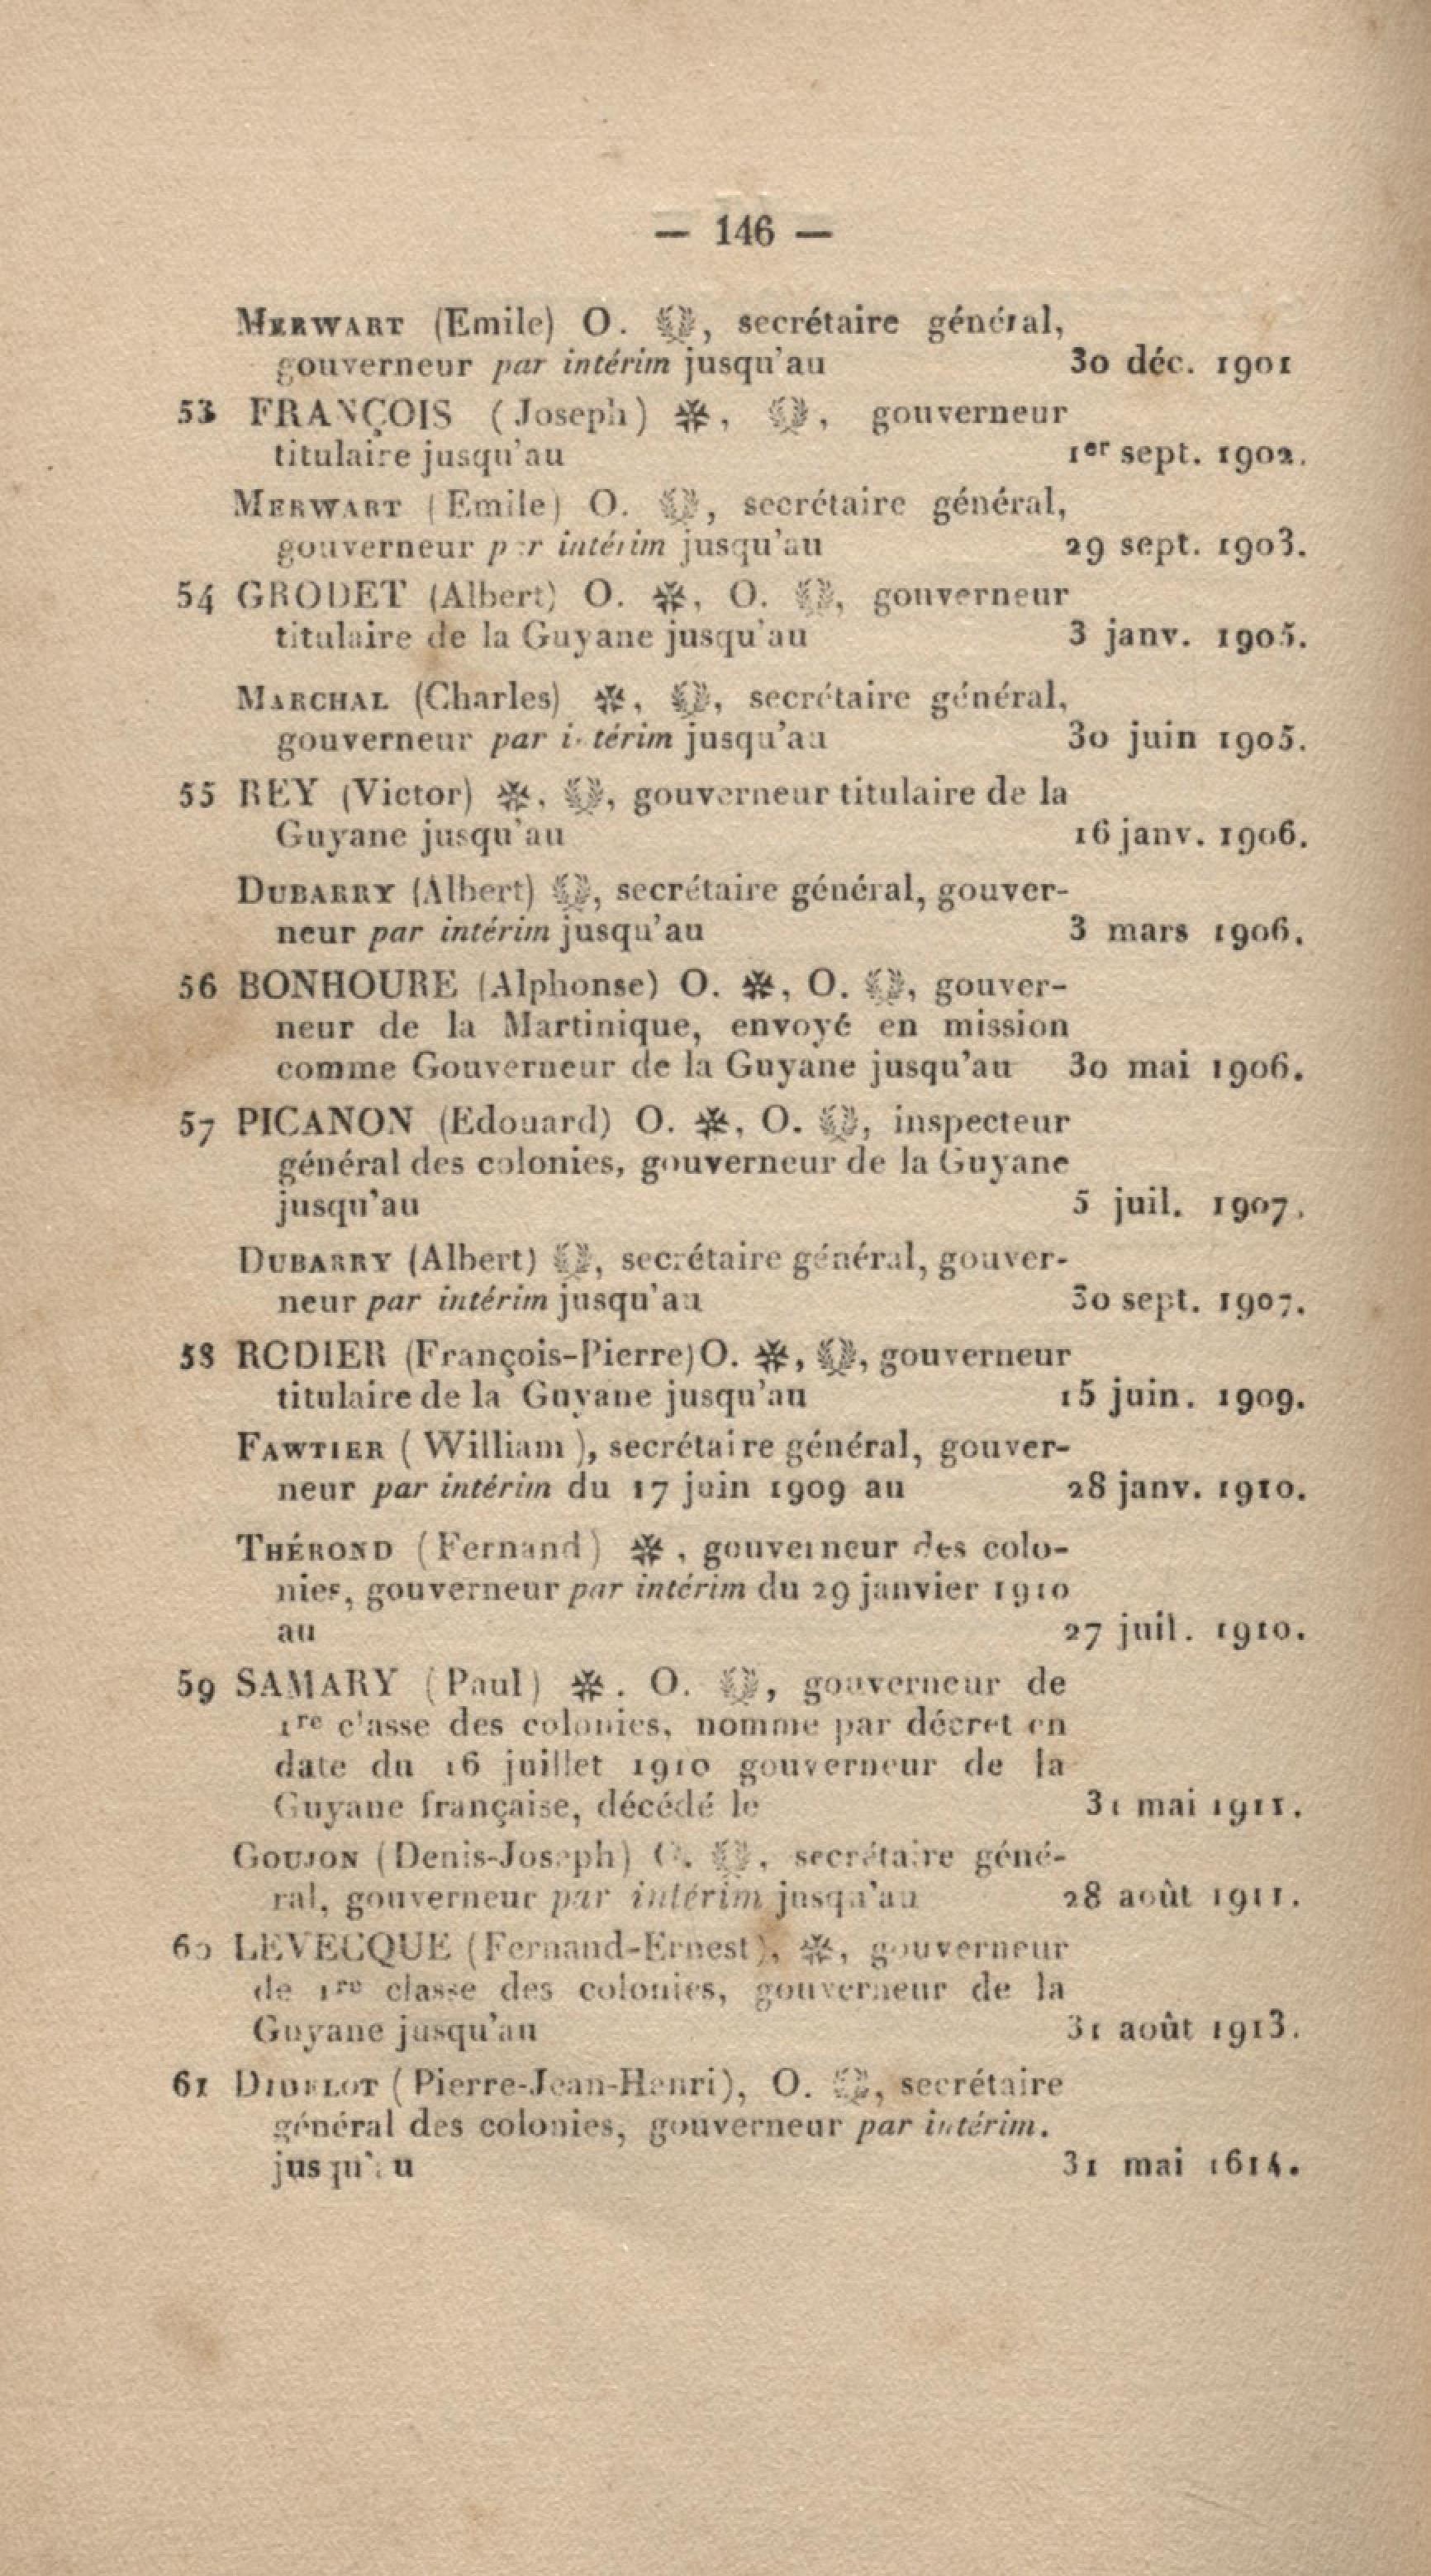 — 146 —
MERWART (Emile) O. , secrétaire général,
gouverneur par intérim jusqu'au 30 déc. 1901
53 FRANÇOIS (Joseph) , , gouverneur
titulaire jusqu'au 1er sept. 1902.
MERWART (Emile) O. , secrétaire général,
gouverneur par intérim jusqu'au 29 sept. 1903.
54 GRODET (Albert) O. , O. , gouverneur
titulaire de la Guyane jusqu'au 3 janv. 1905.
MARCHAL (Charles) , , secrétaire général,
gouverneur par intérim jusqu'au 30 juin 1905.
55 REY (Victor) , , gouverneur titulaire de la
Guyane jusqu'au 16 janv. 1906.
DUBARRY (Albert) , secrétaire général, gouver-
neur par intérim jusqu'au 3 mars 1906.
56 BONHOURE (Alphonse) O. , O. , gouver-
neur de la Martinique, envoyé en mission
comme Gouverneur de la Guyane jusqu'au 30 mai 1906.
57 PICANON (Edouard) O. , O. , inspecteur
général des colonies, gouverneur de la Guyane
jusqu'au 5 juil. 1907.
DUBARRY (Albert) , secrétaire général, gouver-
neur par intérim jusqu'au 30 sept. 1907.
58 RODIER (François-Pierre) O. , , gouverneur
titulaire de la Guyane jusqu'au 15 juin. 1909.
FAWTIER (William), secrétaire général, gouver-
neur par intérim du 17 juin 1909 au 28 janv. 1910.
THÉROND (Fernand) , gouverneur des colo-
nies, gouverneur par intérim du 29 janvier 1910
au 27 juil. 1910.
59 SAMARY (Paul) . O. , gouverneur de
1re classe des colonies, nommé par décret en
date du 16 juillet 1910 gouverneur de la
Guyane française, décédé le 31 mai 1911.
GOUJON (Denis-Joseph) O. , secrétaire géné-
ral, gouverneur par intérim jusqu'au 28 août 1911.
60 LEVECQUE (Fernand-Ernest), , gouverneur
de 1re classe des colonies, gouverneur de la
Guyane jusqu'au 31 août 1913.
61 DIDELOT (Pierre-Jean-Henri), O. , secrétaire
général des colonies, gouverneur par intérim.
jusqu'au 31 mai 1614.